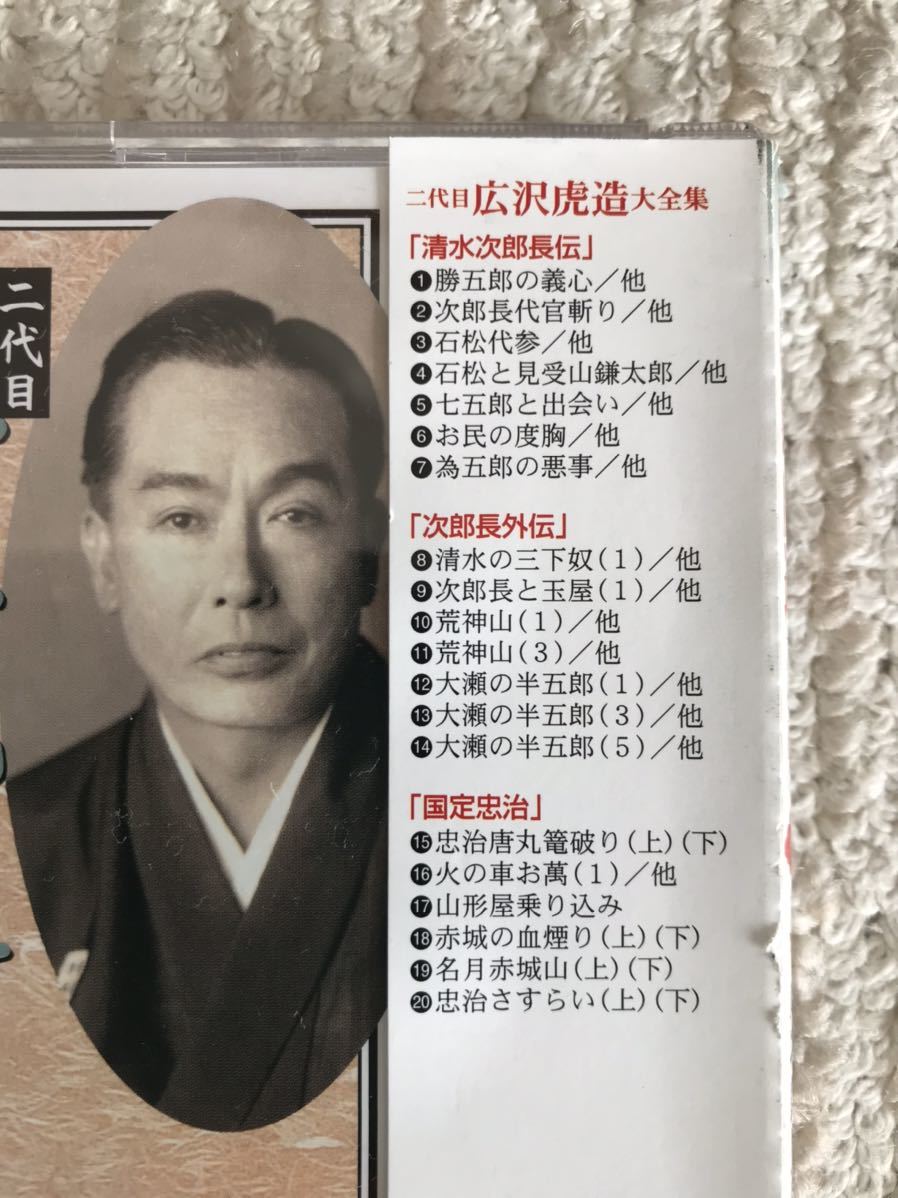 二代目
二代目 広沢虎造大全集
「清水次郎長伝」
❶勝五郎の義心／他
❷次郎長代官斬り／他
❸石松代参／他
❹石松と見受山鎌太郎／他
❺七五郎と出会い／他
❻お民の度胸／他
❼為五郎の悪事／他
「次郎長外伝」
❽清水の三下奴(1)／他
❾次郎長と玉屋(1)／他
❿荒神山(1)／他
⓫荒神山(3)／他
⓬大瀬の半五郎(1)／他
⓭大瀬の半五郎(3)／他
⓮大瀬の半五郎(5)／他
「国定忠治」
⓯忠治唐丸篭破り(上)(下)
⓰火の車お萬(1)／他
⓱山形屋乗り込み
⓲赤城の血煙り(上)(下)
⓳名月赤城山(上)(下)
⓴忠治さすらい(上)(下)